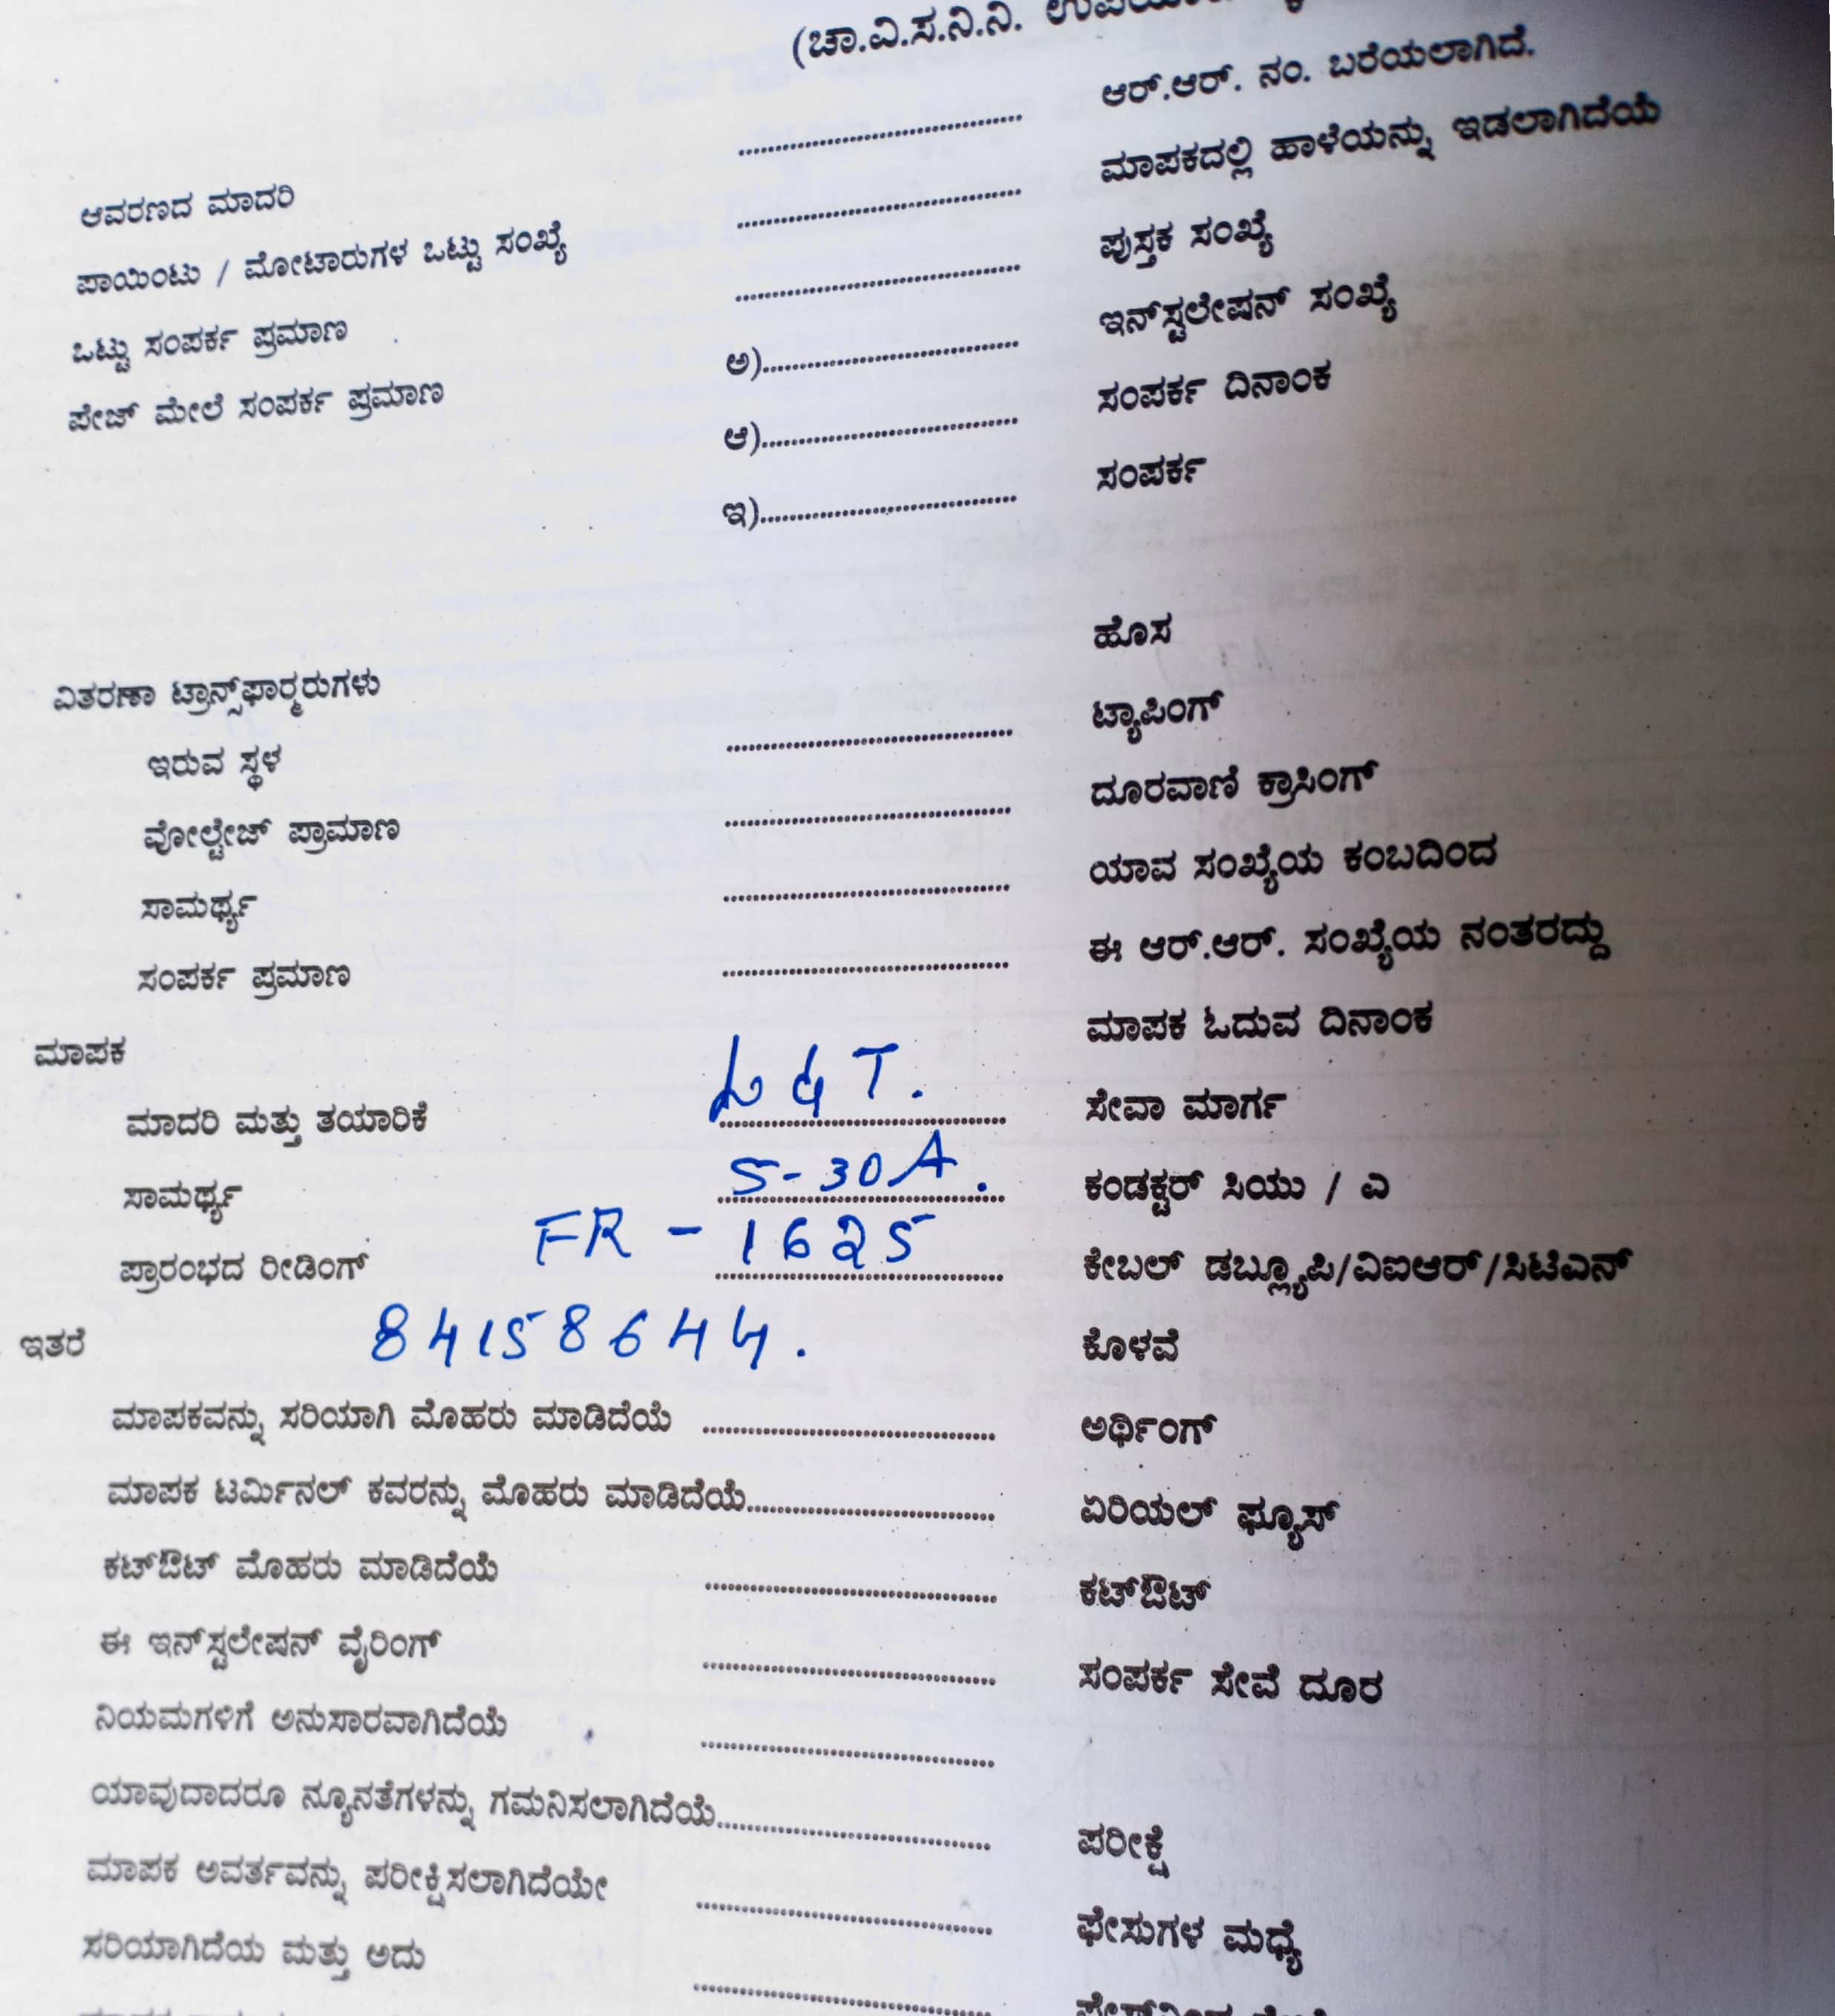 (ಚಾ.ವಿ.ಸ.ನಿ.ನಿ.
ಆವರಣದ ಮಾದರಿ ....................
ಪಾಯಿಂಟು / ಮೋಟಾರುಗಳ ಒಟ್ಟು ಸಂಖ್ಯೆ ....................
ಒಟ್ಟು ಸಂಪರ್ಕ ಪ್ರಮಾಣ ....................
ಪೇಜ್ ಮೇಲೆ ಸಂಪರ್ಕ ಪ್ರಮಾಣ ಅ)....................
ಆ)....................
ಇ)....................
ವಿತರಣಾ ಟ್ರಾನ್ಸ್‌ಫಾರ್ಮರುಗಳು
ಇರುವ ಸ್ಥಳ ....................
ವೋಲ್ಟೇಜ್ ಪ್ರಾಮಾಣ ....................
ಸಾಮರ್ಥ್ಯ ....................
ಸಂಪರ್ಕ ಪ್ರಮಾಣ ....................
ಮಾಪಕ
ಮಾದರಿ ಮತ್ತು ತಯಾರಿಕೆ L & T.
ಸಾಮರ್ಥ್ಯ 5-30A.
ಪ್ರಾರಂಭದ ರೀಡಿಂಗ್ FR - 1625
ಇತರೆ 84158644.
ಮಾಪಕವನ್ನು ಸರಿಯಾಗಿ ಮೊಹರು ಮಾಡಿದೆಯೆ ....................
ಮಾಪಕ ಟರ್ಮಿನಲ್ ಕವರನ್ನು ಮೊಹರು ಮಾಡಿದೆಯೆ....................
ಕಟ್‌ಔಟ್ ಮೊಹರು ಮಾಡಿದೆಯೆ ....................
ಈ ಇನ್‌ಸ್ಟಲೇಷನ್ ವೈರಿಂಗ್ ....................
ನಿಯಮಗಳಿಗೆ ಅನುಸಾರವಾಗಿದೆಯೆ ....................
ಯಾವುದಾದರೂ ನ್ಯೂನತೆಗಳನ್ನು ಗಮನಿಸಲಾಗಿದೆಯೆ....................
ಮಾಪಕ ಅವರ್ತವನ್ನು ಪರೀಕ್ಷಿಸಲಾಗಿದೆಯೇ ....................
ಸರಿಯಾಗಿದೆಯ ಮತ್ತು ಅದು ....................
ಆರ್.ಆರ್. ನಂ. ಬರೆಯಲಾಗಿದೆ.
ಮಾಪಕದಲ್ಲಿ ಹಾಳೆಯನ್ನು ಇಡಲಾಗಿದೆಯೆ
ಪುಸ್ತಕ ಸಂಖ್ಯೆ
ಇನ್‌ಸ್ಟಲೇಷನ್ ಸಂಖ್ಯೆ
ಸಂಪರ್ಕ ದಿನಾಂಕ
ಸಂಪರ್ಕ
ಹೊಸ
ಟ್ಯಾಪಿಂಗ್
ದೂರವಾಣಿ ಕ್ರಾಸಿಂಗ್
ಯಾವ ಸಂಖ್ಯೆಯ ಕಂಬದಿಂದ
ಈ ಆರ್.ಆರ್. ಸಂಖ್ಯೆಯ ನಂತರದ್ದು
ಮಾಪಕ ಓದುವ ದಿನಾಂಕ
ಸೇವಾ ಮಾರ್ಗ
ಕಂಡಕ್ಟರ್ ಸಿಯು / ಎ
ಕೇಬಲ್ ಡಬ್ಲ್ಯೂಪಿ/ವಿಐಆರ್/ಸಿಟಿಎನ್
ಕೊಳವೆ
ಅರ್ಥಿಂಗ್
ಏರಿಯಲ್ ಫ್ಯೂಸ್
ಕಟ್‌ಔಟ್
ಸಂಪರ್ಕ ಸೇವೆ ದೂರ
ಪರೀಕ್ಷೆ
ಫೇಸುಗಳ ಮಧ್ಯೆ